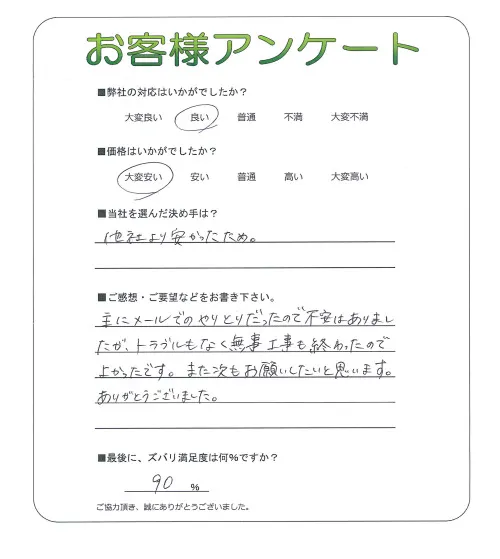 お客様アンケート
■弊社の対応はいかがでしたか？
大変良い 良い 普通 不満 大変不満
■価格はいかがでしたか？
大変安い 安い 普通 高い 大変高い
■当社を選んだ決め手は？
他社より安かったため。
■ご感想・ご要望などをお書き下さい。
主にメールでのやりとりだったので不安はありまし
たが、トラブルもなく無事工事も終わったので
よかったです。また次もお願いしたいと思います。
ありがとうございました。
■最後に、ズバリ満足度は何％ですか？
90 ％
ご協力頂き、誠にありがとうございました。